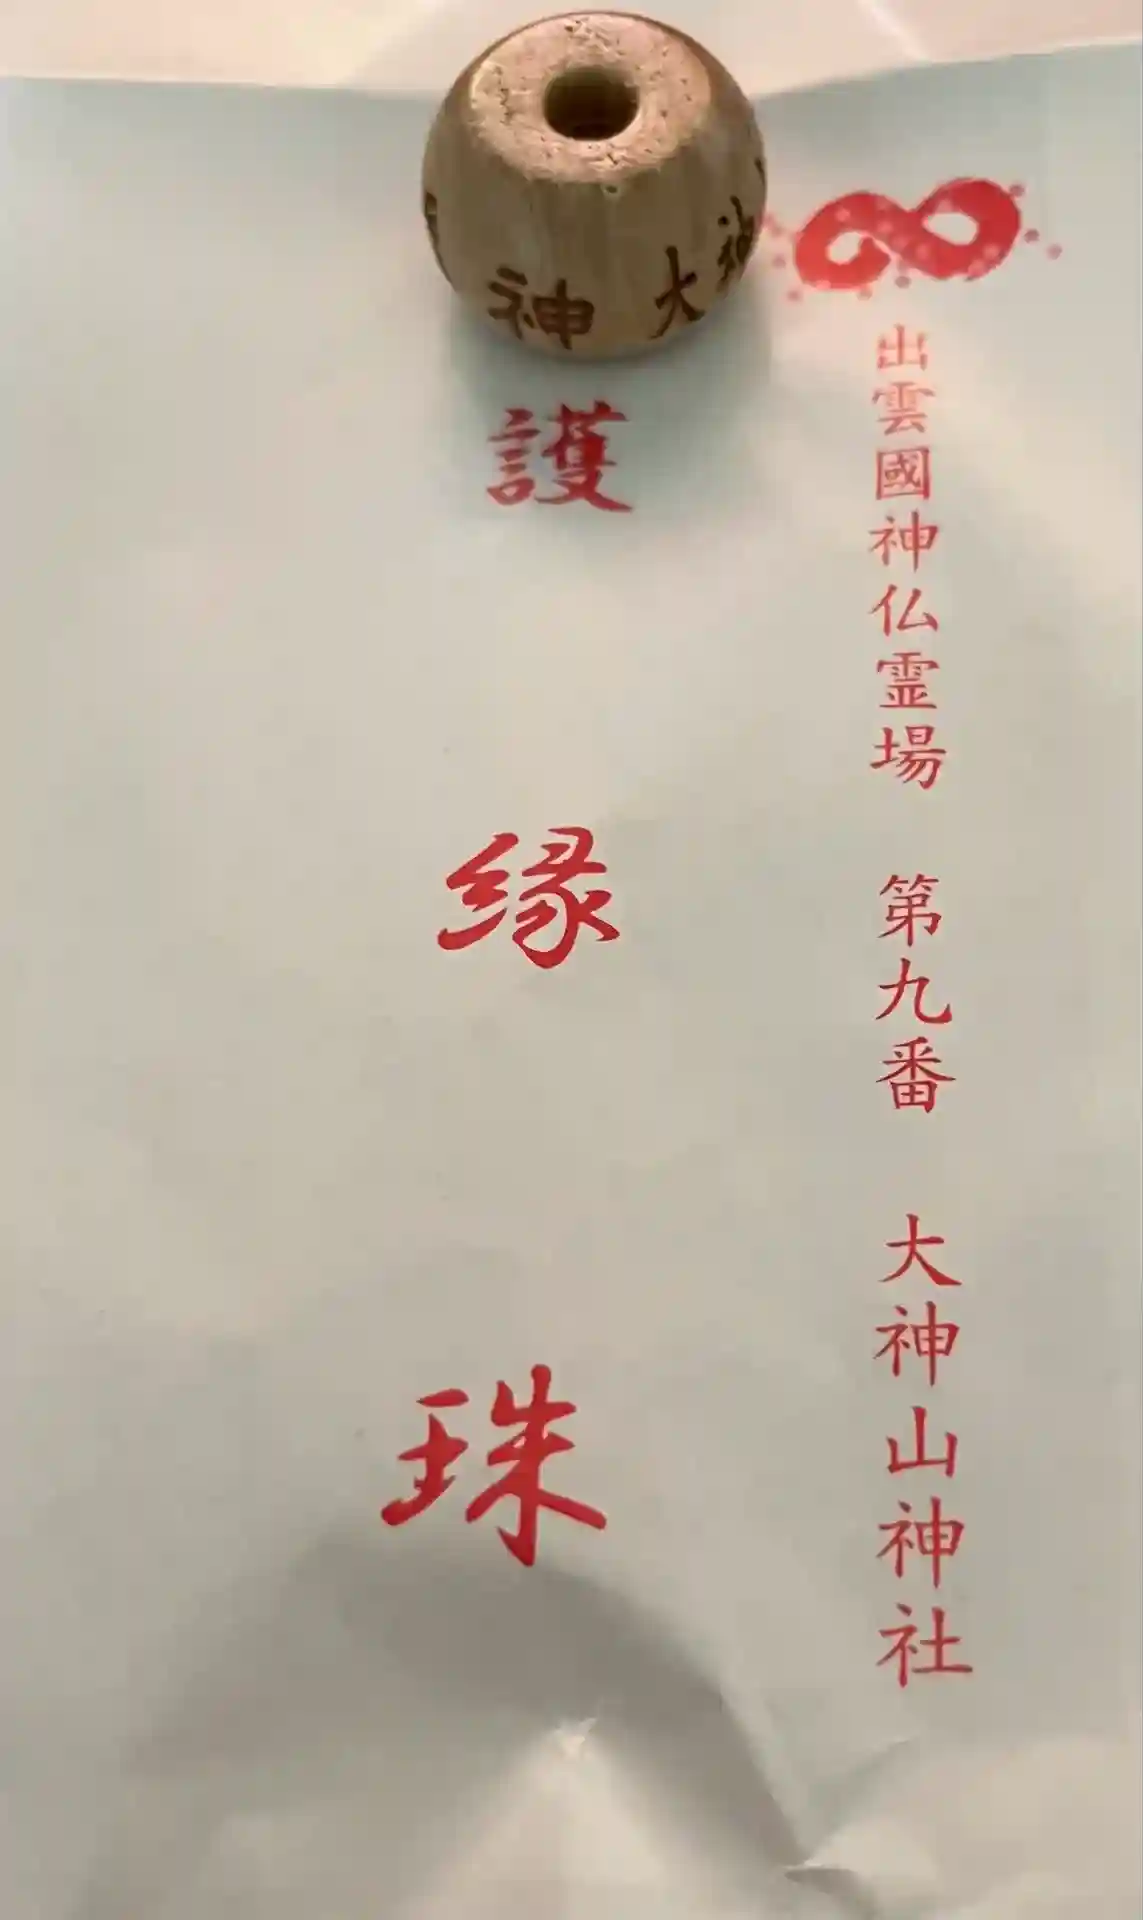 出雲國神仏霊場 第九番 大神山神社
護縁珠
神 大神